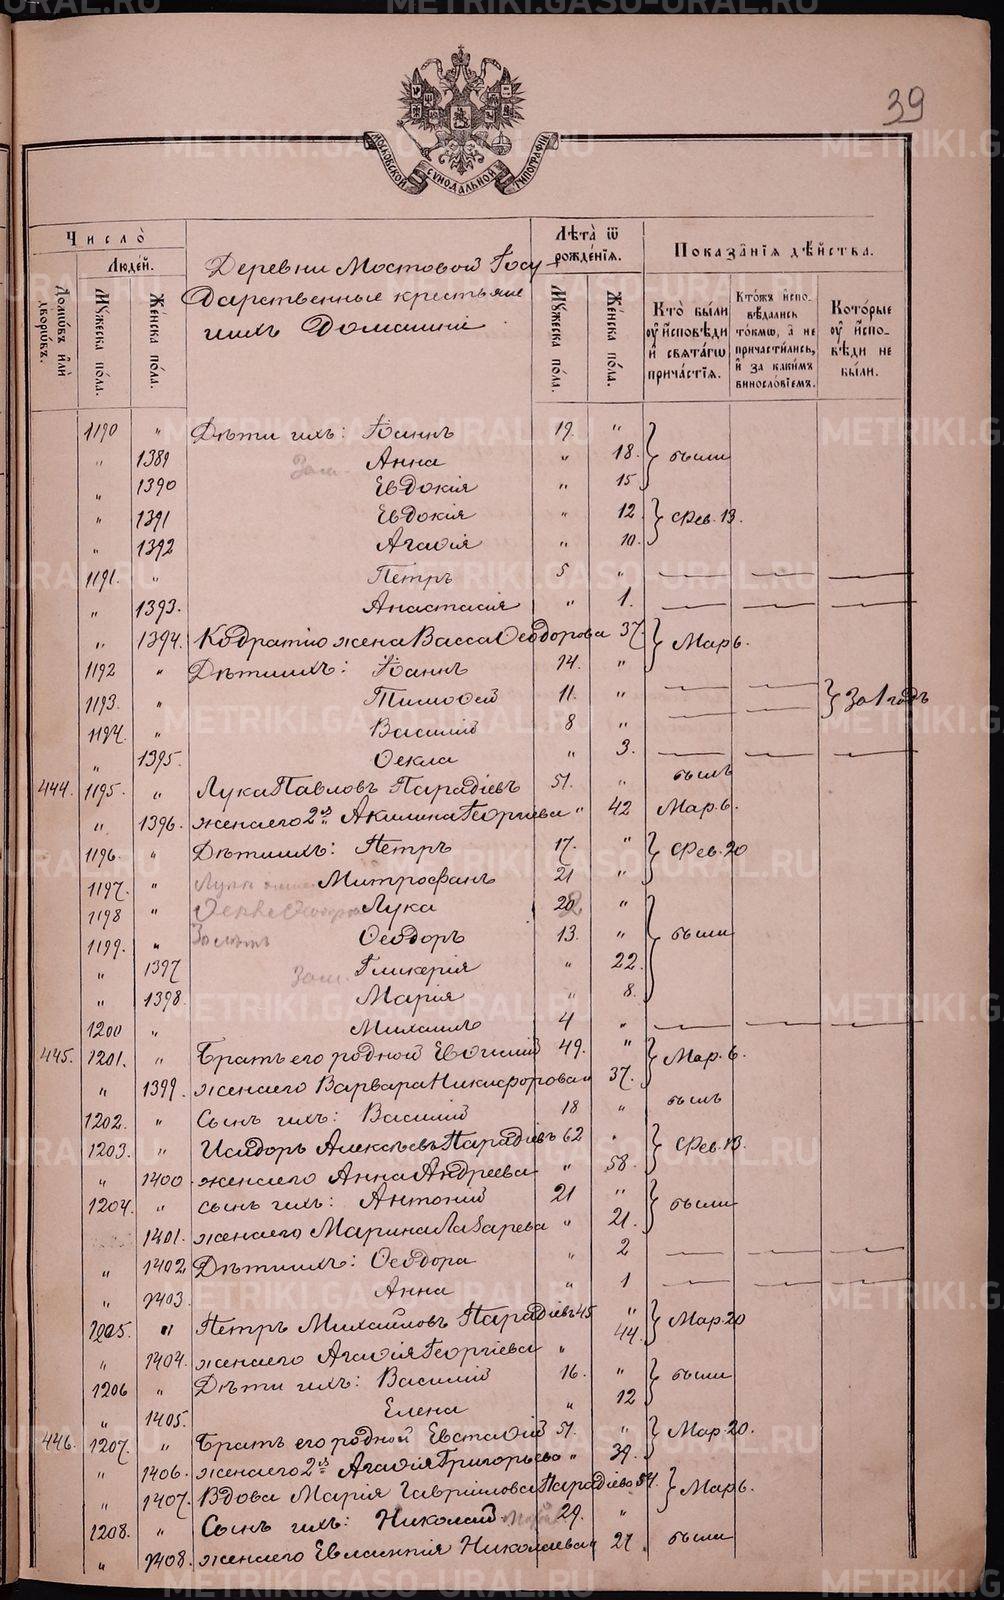 39
МОСКОВСКОЙ СѴНОДАЛЬНОЙ ТИПОГРАФІИ
Число̀
Людей.
Домѡвъ илѝ дворѡвъ.
Мꙋжеска по́ла.
Же́нска по́ла.
Деревни Мостовой Госу
дарственные крестьяне
ихъ Домашніе
Лѣта̀ ѿ рожде́нїѧ.
Мꙋжеска по́ла.
Же́нска по́ла.
Показа̂нїѧ дѣ́йства.
Кто̀ бы́ли оу҆ и҆́сповѣди и҆ свѧта́гѡ прича́стїѧ.
Кто́жъ и҆спо- вѣ́дались то́кмѡ, а҆ не причасти́лись, и҆ за каки́мъ винослóвїемъ.
Кото́рые оу҆ и҆́спо- вѣди не бы́ли.
1190 " Дѣти ихъ: Іоаннъ 19. "
" 1389 Анна " 18. были
" 1390 Евдокія " 15
" 1391 Евдокія " 12. Фев. 13.
" 1392 Агаѳія " 10.
1191. " Петръ 5 "
" 1393. Анастасія " 1.
" 1394. Кодратію жена Васса Ѳеодорова 37. Мар 6.
1192 " Дѣти ихъ: Іоаннъ 14. "
1193. " Тимоѳей 11. " За 1 годъ
1194. " Василій 8 "
" 1395. Ѳекла " 3.
444. 1195. " Лука Павловъ Парадіевъ 51. " былъ
" 1396. жена его 2я Акилина Георгіева " 42 Мар. 6.
1196. " Дѣти ихъ: Петръ 17. " Фев. 20
1197. " Митрофанъ 21 "
1198 " Лука 20 "
1199. " Ѳеодоръ 13. " были
" 1397 Гликерія " 22.
" 1398. Марія " 8.
1200 " Михаилъ 4 "
445. 1201. " Братъ его родной Евѳимій 49. " Мар. 6.
" 1399. жена его Варвара Никифорова 37.
1202. " Сынъ ихъ: Василій 18 " былъ
1203. " Исидоръ Алексѣевъ Парадіевъ 62 " Фев. 13.
" 1400. жена его Анна Андреева " 58.
1204. " сынъ ихъ: Антоній 21 " были
1401. жена его Марина Лазарева " 21.
" 1402 Дѣти ихъ: Ѳеодора " 2
" 1403. Анна " 1
1205. " Петръ Михайловъ Парадіевъ 45 " Мар. 20
" 1404. жена его Агаѳія Георгіева " 44.
1206 " Дѣти ихъ: Василій 16. " были
" 1405. Елена " 12
446. 1207. " Братъ его родной Евстаѳій 51. " Мар 20.
" 1406. жена его 2я Агаѳія Григорьева " 39.
" 1407. Вдова Марія Гавриилова Парадіева 54. Мар 6.
1208. " Сынъ ихъ: Николай 29. "
" 1408. жена его Евлампія Николаева 27. были